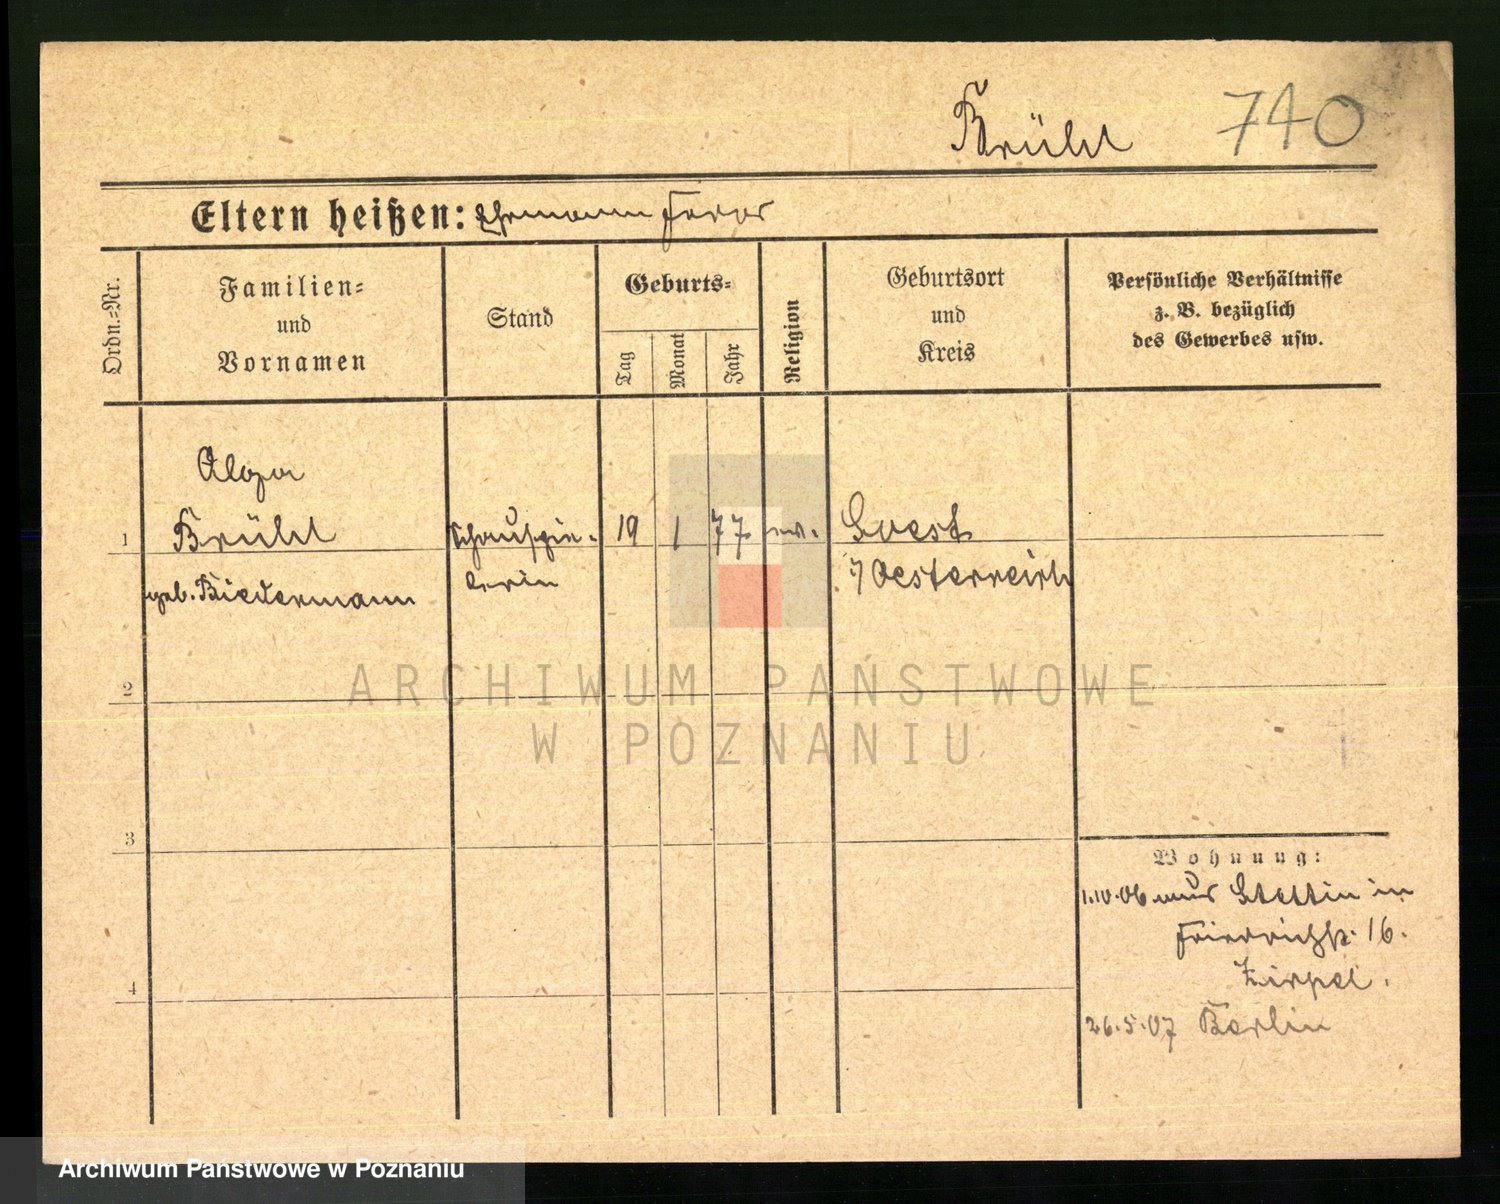 Brühl 740
Eltern heißen: Ehemann Franz
Ordn.-Nr.
Familien-
und
Vornamen
Stand
Geburts-
Tag
Monat
Jahr
Religion
Geburtsort
und
Kreis
Persönliche Verhältnisse
z. B. bezüglich
des Gewerbes usw.
Olga
1 Brühl Schauspie- 19 1 77 ev.
geb. Biedermann lerin
Oesterreich
2
ARCHIWUM PAŃSTWOWE
W POZNANIU
3
Wohnung:
1.10.06 aus Stettin in
Friedrichstr. 16.
Zirpel.
4
26.5.07 Berlin
Archiwum Państwowe w Poznaniu